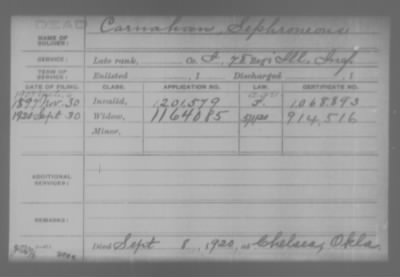 DEAD
NAME OF SOLDIER: Carnahan, Sephroneous
SERVICE: Late rank, Co. F, 78 Reg't Ill. Inf.
TERM OF SERVICE: Enlisted , 1 Discharged , 1
DATE OF FILING. CLASS. APPLICATION NO. LAW. CERTIFICATE NO.
1897 Nov. 30 Invalid, 1201579 1068893
1920 Sept 30 Widow, 1164085 5/1/20 914,516
Minor,
ADDITIONAL SERVICES:
REMARKS:
Died Sept 8, 1920, at Chelsea, Okla.